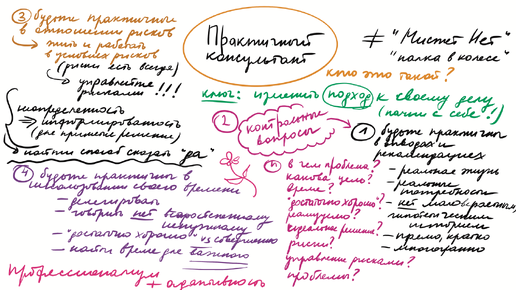 Практичный
консультант
≠ "Мистер Нет"
"палка в колесе"
кто это такой?
ключ: изменить подход к своему делу
(начни с себе!)
1 будьте практичны
в выводах и
рекомендациях
- реальная жизнь
- реальные
потребности
- нет малобразным,
гипотетическим
историям
- прямо, кратко
- многогранно
2 контрольные
вопросы
в чем проблема?
какова цель?
время?
"достаточно хорошо"
реализуемо?
идеальное решение?
риски?
управление рисками?
проблемы?
3 будьте практичны
в отношении рисков
жить и работать
в условиях рисков
(риски есть всегда)
управляйте
рисками !!!
неопределенность
⇒ информированность
(для принятия решения)
→ найти способ сказать "да"
4 будьте практичны в
использовании своего времени
- делегировать
- говорить нет второстепенному
ненужному
- "достаточно хорошо" vs совершенно
- найти время для важного
Профессионализм
+ адекватность